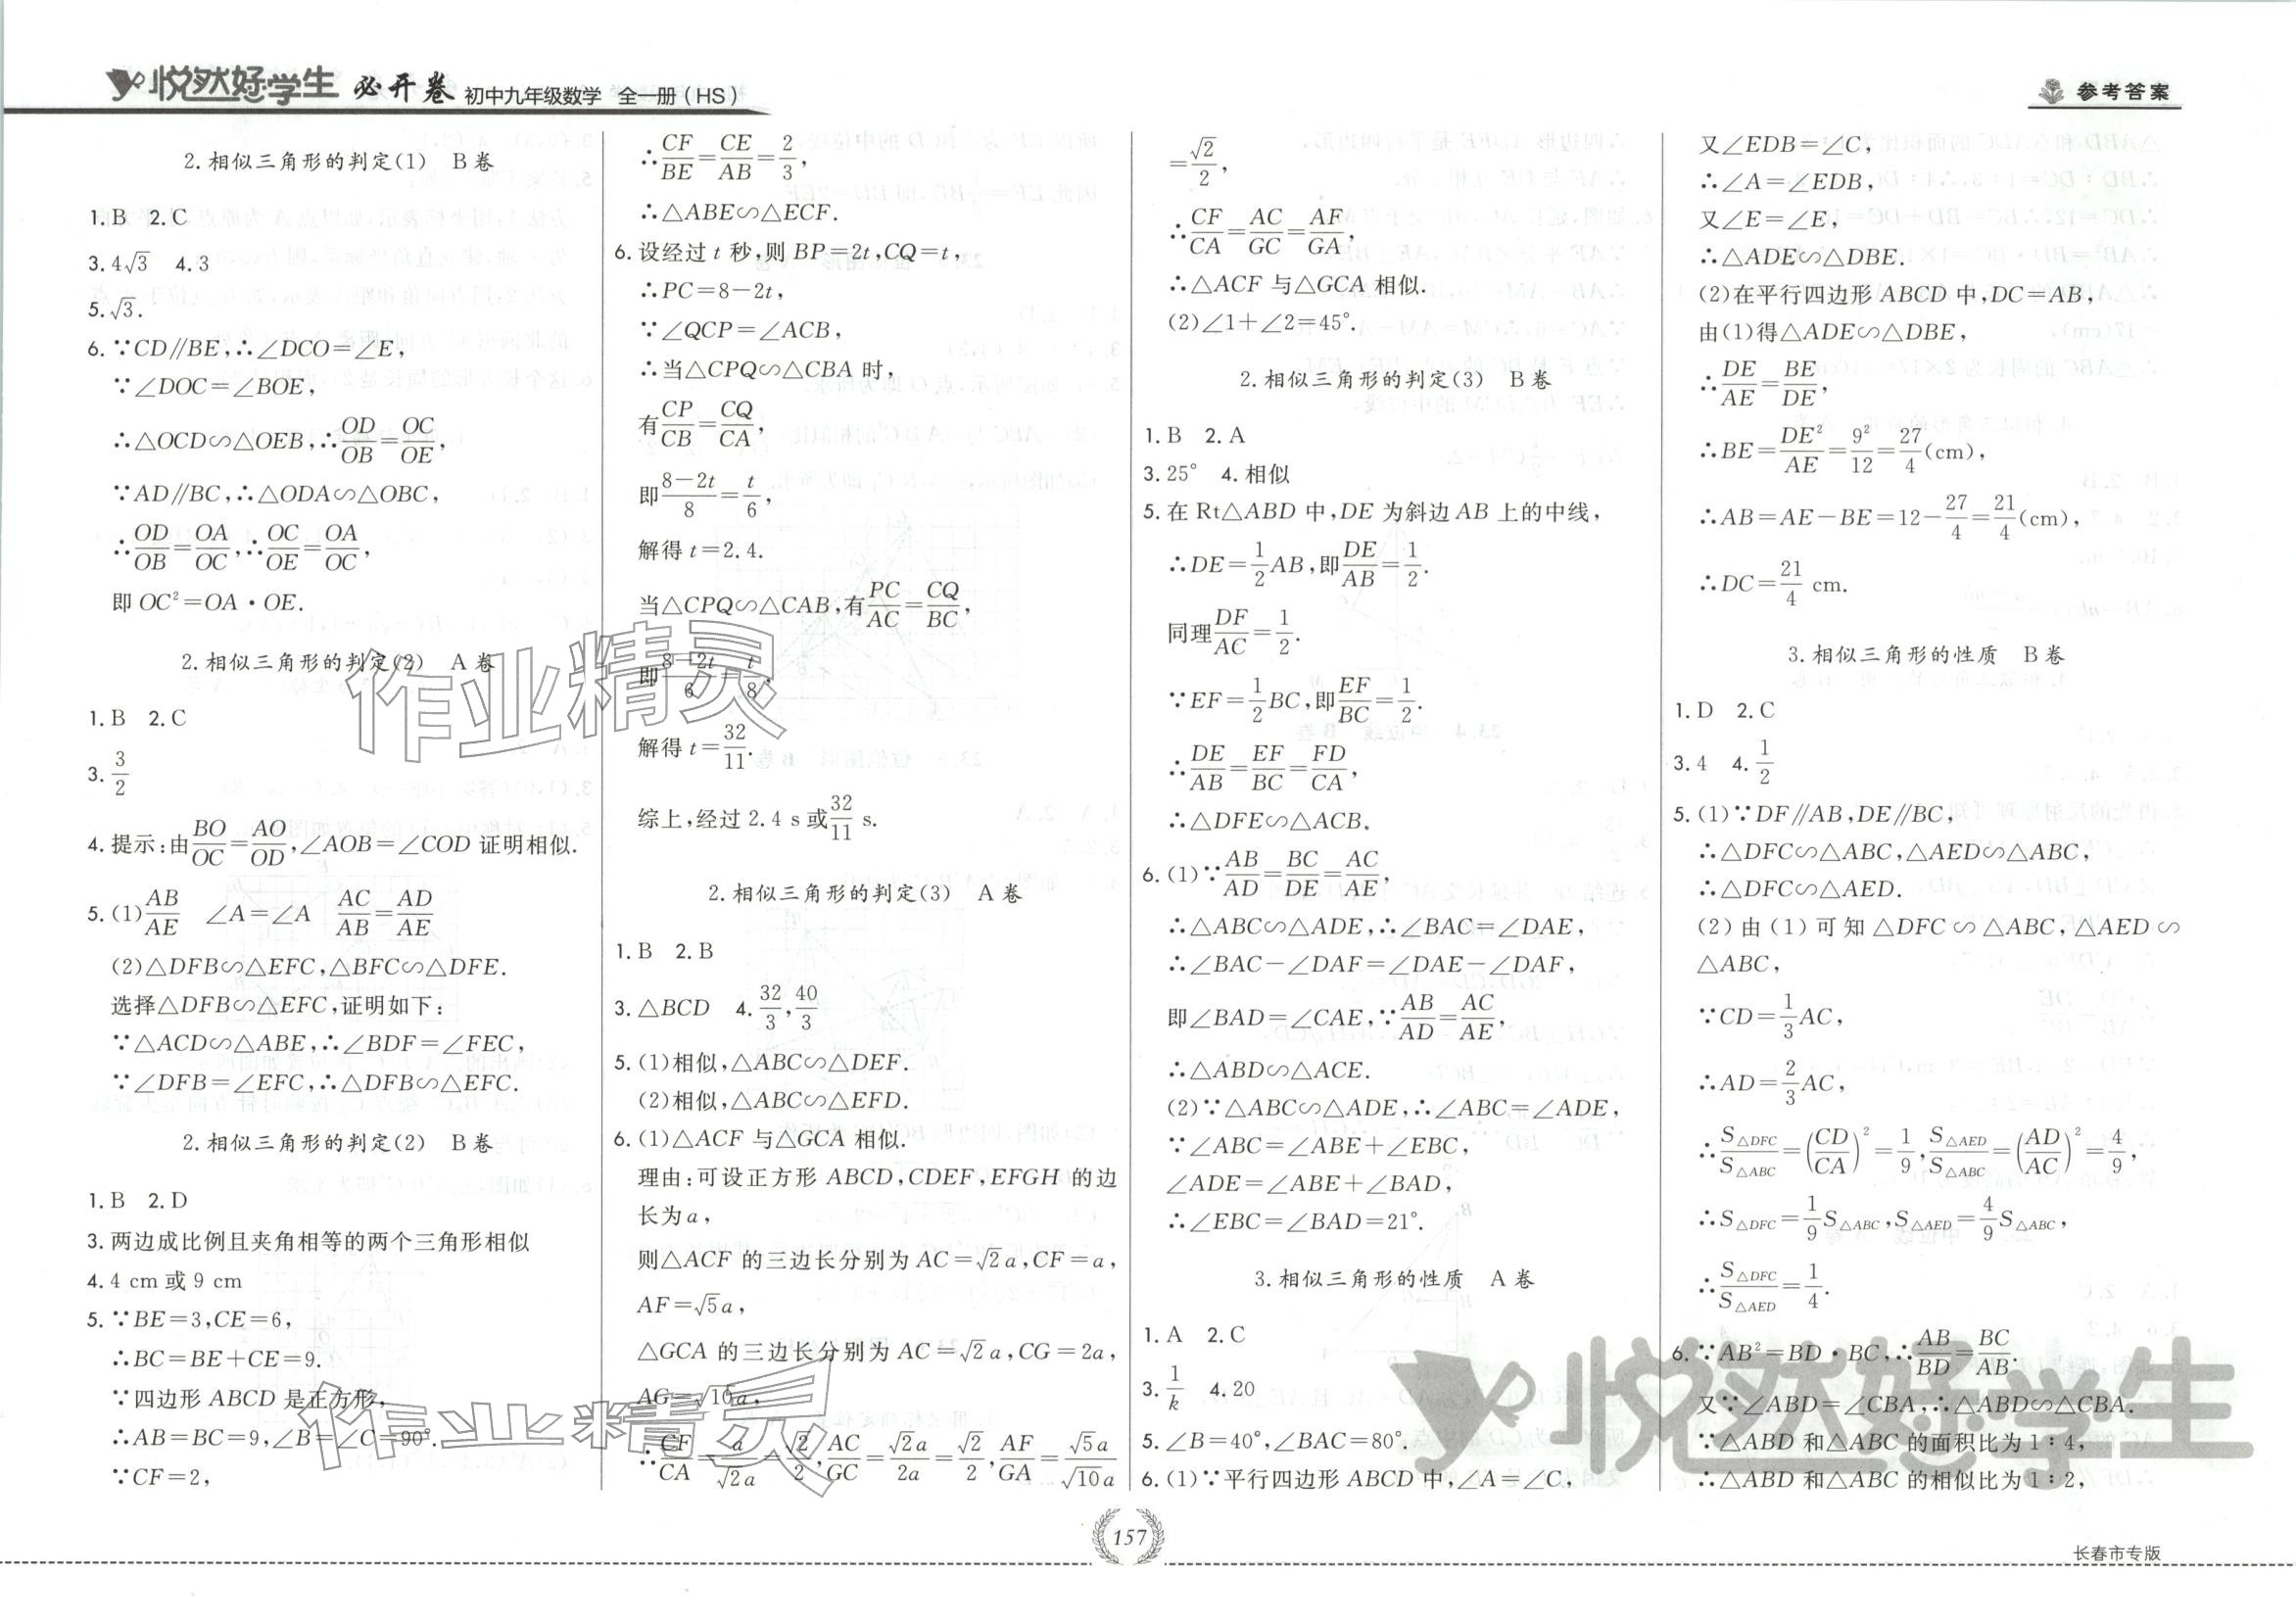 悦然好学生 必开卷 初中九年级数学 全一册(HS)
参考答案
2.相似三角形的判定(1) B卷
1.B 2.C
3.4√3 4.3
5.√3.
6.∵CD∥BE,∴∠DCO=∠E,
∵∠DOC=∠BOE,
∴△OCD∽△OEB,∴OD/OB=OC/OE,
∵AD∥BC,∴△ODA∽△OBC,
∴OD/OB=OA/OC,∴OC/OE=OA/OC,
即OC²=OA·OE.
2.相似三角形的判定(2) A卷
1.B 2.C
3.3/2
4.提示:由BO/OC=AO/OD,∠AOB=∠COD证明相似.
5.(1)AB/AE ∠A=∠A AC/AB=AD/AE
(2)△DFB∽△EFC,△BFC∽△DFE.
选择△DFB∽△EFC,证明如下:
∵△ACD∽△ABE,∴∠BDF=∠FEC,
∵∠DFB=∠EFC,∴△DFB∽△EFC.
2.相似三角形的判定(2) B卷
1.B 2.D
3.两边成比例且夹角相等的两个三角形相似
4.4 cm或9 cm
5.∵BE=3,CE=6,
∴BC=BE+CE=9.
∵四边形ABCD是正方形,
∴AB=BC=9,∠B=∠C=90°.
∵CF=2,
∴CF/BE=CE/AB=2/3,
∴△ABE∽△ECF.
6.设经过t秒,则BP=2t,CQ=t,
∴PC=8-2t,
∵∠QCP=∠ACB,
∴当△CPQ∽△CBA时,
有CP/CB=CQ/CA,
即(8-2t)/8=t/6,
解得t=2.4.
当△CPQ∽△CAB,有PC/AC=CQ/BC,
即(8-2t)/6=t/8,
解得t=32/11.
综上,经过2.4 s或32/11 s.
2.相似三角形的判定(3) A卷
1.B 2.B
3.△BCD 4.32/3,40/3
5.(1)相似,△ABC∽△DEF.
(2)相似,△ABC∽△EFD.
6.(1)△ACF与△GCA相似.
理由:可设正方形ABCD,CDEF,EFGH的边
长为a,
则△ACF的三边长分别为AC=√2a,CF=a,
AF=√5a,
△GCA的三边长分别为AC=√2a,CG=2a,
AG=√10a,
∴CF/CA=a/√2a=√2/2,AC/GC=√2a/2a=√2/2,AF/GA=√5a/√10a
=√2/2,
∴CF/CA=AC/GC=AF/GA,
∴△ACF与△GCA相似.
(2)∠1+∠2=45°.
2.相似三角形的判定(3) B卷
1.B 2.A
3.25° 4.相似
5.在Rt△ABD中,DE为斜边AB上的中线,
∴DE=1/2AB,即DE/AB=1/2.
同理DF/AC=1/2.
∵EF=1/2BC,即EF/BC=1/2.
∴DE/AB=EF/BC=FD/CA,
∴△DFE∽△ACB.
6.(1)∵AB/AD=BC/DE=AC/AE,
∴△ABC∽△ADE,∴∠BAC=∠DAE,
∴∠BAC-∠DAF=∠DAE-∠DAF,
即∠BAD=∠CAE,∵AB/AD=AC/AE,
∴△ABD∽△ACE.
(2)∵△ABC∽△ADE,∴∠ABC=∠ADE,
∵∠ABC=∠ABE+∠EBC,
∠ADE=∠ABE+∠BAD,
∴∠EBC=∠BAD=21°.
3.相似三角形的性质 A卷
1.A 2.C
3.1/k 4.20
5.∠B=40°,∠BAC=80°.
6.(1)∵平行四边形ABCD中,∠A=∠C,
又∠EDB=∠C,
∴∠A=∠EDB,
又∠E=∠E,
∴△ADE∽△DBE.
(2)在平行四边形ABCD中,DC=AB,
由(1)得△ADE∽△DBE,
∴DE/AE=BE/DE,
∴BE=DE²/AE=9²/12=27/4(cm),
∴AB=AE-BE=12-27/4=21/4(cm),
∴DC=21/4 cm.
3.相似三角形的性质 B卷
1.D 2.C
3.4 4.1/2
5.(1)∵DF∥AB,DE∥BC,
∴△DFC∽△ABC,△AED∽△ABC,
∴△DFC∽△AED.
(2)由(1)可知△DFC∽△ABC,△AED∽
△ABC,
∵CD=1/3AC,
∴AD=2/3AC,
∴S△DFC/S△ABC=(CD/CA)²=1/9,S△AED/S△ABC=(AD/AC)²=4/9,
∴S△DFC=1/9S△ABC,S△AED=4/9S△ABC,
∴S△DFC/S△AED=1/4.
6.∵AB²=BD·BC,∴AB/BD=BC/AB.
又∵∠ABD=∠CBA,∴△ABD∽△CBA.
∵△ABD和△ABC的面积比为1∶4,
∴△ABD和△ABC的相似比为1∶2,
作业精灵
作业精灵
悦然好学生
157
长春市专版